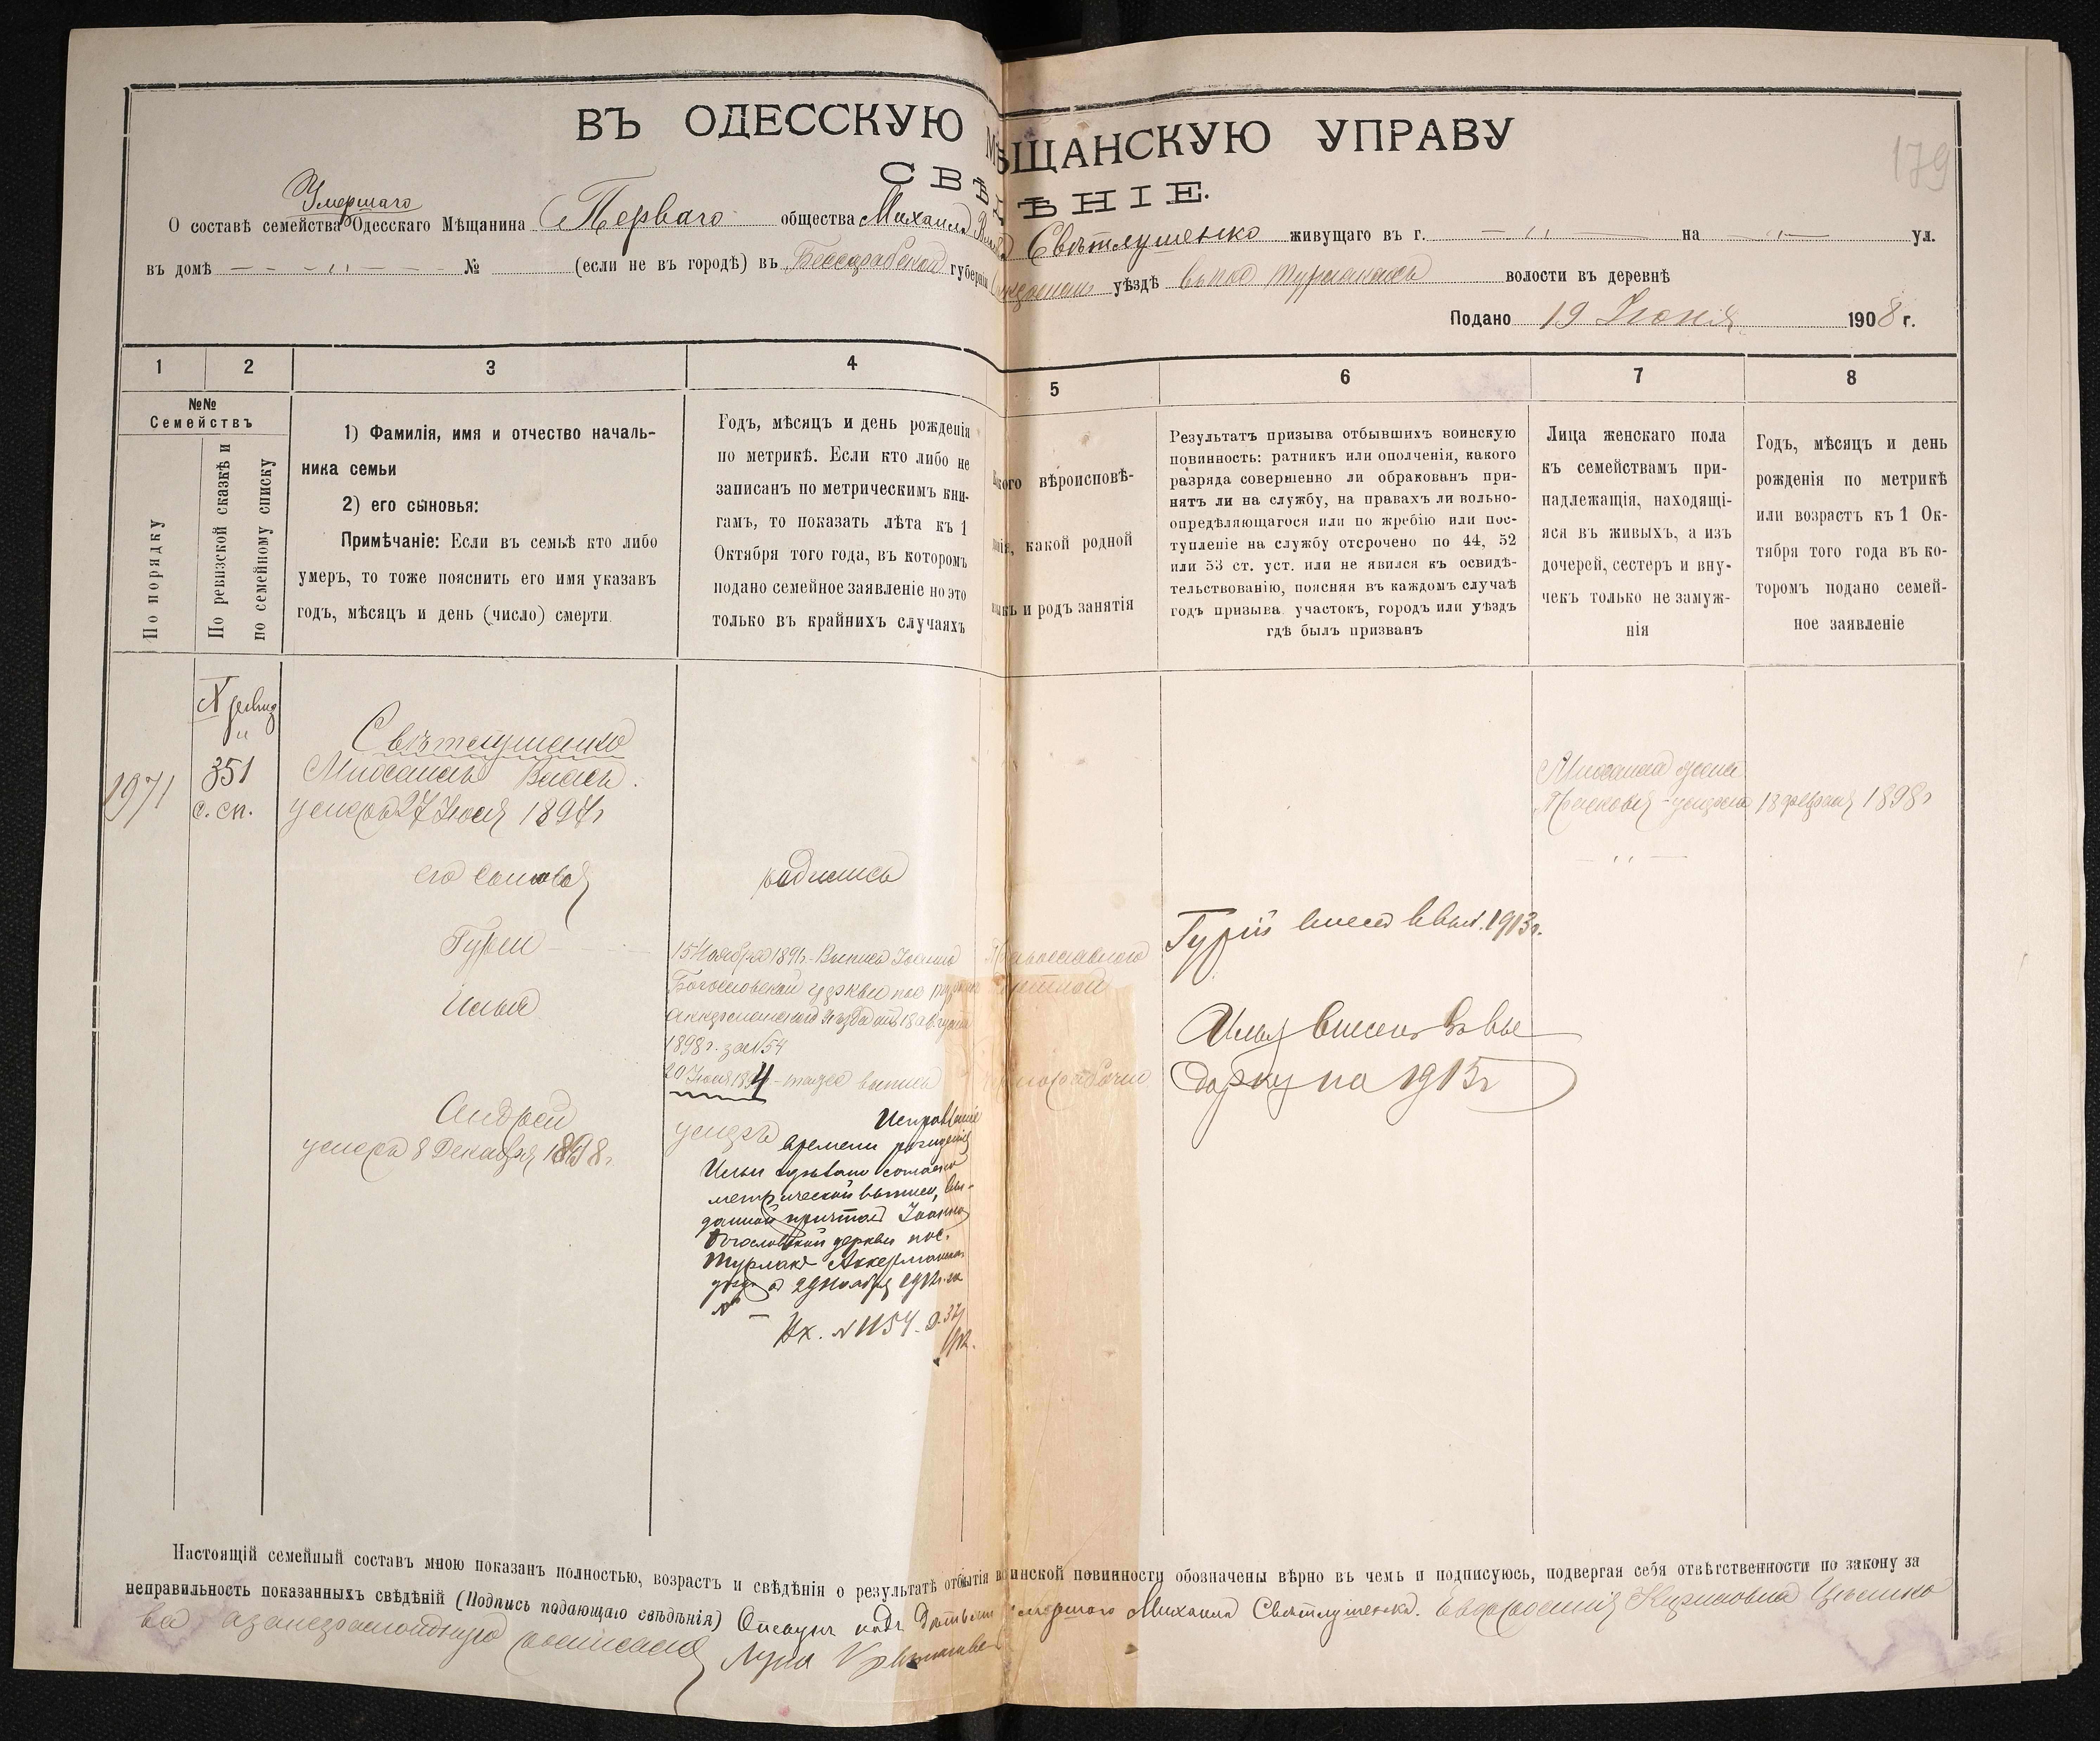 ВЪ ОДЕССКУЮ МѢЩАНСКУЮ УПРАВУ
179
СВѢДѢНІЕ.
Умершаго
О составѣ семейства Одесскаго Мѣщанина Перваго общества Михаила Свѣтлушенко живущаго въ г. — „ — на — „ — ул.
въ домѣ — „ — № (если не въ городѣ) въ Бессарабской губерніи уѣздѣ въ пос Турлакахъ волости въ деревнѣ
Подано 19 Іюня 1908 г.
1 2 3 4 5 6 7 8
№№
Семействъ
По порядку
По ревизской сказкѣ и
по семейному списку
1) Фамилія, имя и отчество началь-
ника семьи
2) его сыновья:
Примѣчаніе: Если въ семьѣ кто либо
умеръ, то тоже пояснить его имя указавъ
годъ, мѣсяцъ и день (число) смерти.
Годъ, мѣсяцъ и день рожденія
по метрикѣ. Если кто либо не
записанъ по метрическимъ кни-
гамъ, то показать лѣта къ 1
Октября того года, въ которомъ
подано семейное заявленіе но это
только въ крайнихъ случаяхъ
вѣроисповѣ-
какой родной
и родъ занятія
Результатъ призыва отбывшихъ воинскую
повинность: ратникъ или ополченія, какого
разряда совершенно ли обракованъ при-
нятъ ли на службу, на правахъ ли вольно-
опредѣляющагося или по жребію или пос-
тупленіе на службу отсрочено по 44, 52
или 53 ст. уст. или не явился къ освидѣ-
тельствованію, поясняя въ каждомъ случаѣ
годъ призыва участокъ, городъ или уѣздъ
гдѣ былъ призванъ
Лица женскаго пола
къ семействамъ при-
надлежащія, находящі-
яся въ живыхъ, а изъ
дочерей, сестеръ и вну-
чекъ только не замуж-
нія
Годъ, мѣсяцъ и день
рожденія по метрикѣ
или возрастъ къ 1 Ок-
тября того года въ ко-
торомъ подано семей-
ное заявленіе
1971
№ ревиз
„
351
с. сп.
Свѣтлушенко
Михаилъ Васил.
умеръ 27 Іюля 1897г
его сыновья
Гурій
Илья
Андрей
умеръ 8 Декабря 1898г.
родились
15 Ноября 1891г. - Выпись Іоанно
Богословской церкви пос
Аккерманскаго уѣзда отъ 18 августа
1898 г. за №54
20 Іюля 1894 - тоже выпись
умеръ
Исправленіе
времени рожденія
Ильи сдѣлано согласно
метрической выписи, вы-
данной причтомъ Іоанно
Богословской церкви пос.
Турлаки Аккерманск.
уѣзда 29 Ноября 1912 г. за
№ —
Вх. №1154
Православнаго
чернорабочій
Гурій внесен в вып. 1913г.
Илья внесен въ вы
борку на 1915г
Михаила жена
Прасковья - умерла 18 февраля 1898г
— „ —
Настоящій семейный составъ мною показанъ полностью, возрастъ и свѣдѣнія о результатѣ отбытія воинской повинности обозначены вѣрно въ чемъ и подписуюсь, подвергая себя отвѣтственности по закону за
неправильность показанныхъ свѣдѣній (Подпись подающаго свѣдѣнія) Опекунъ надъ дѣтьми умершаго Михаила Свѣтлушенка. Евфросинія Кириловна
ва а за неграмотную росписался Лука